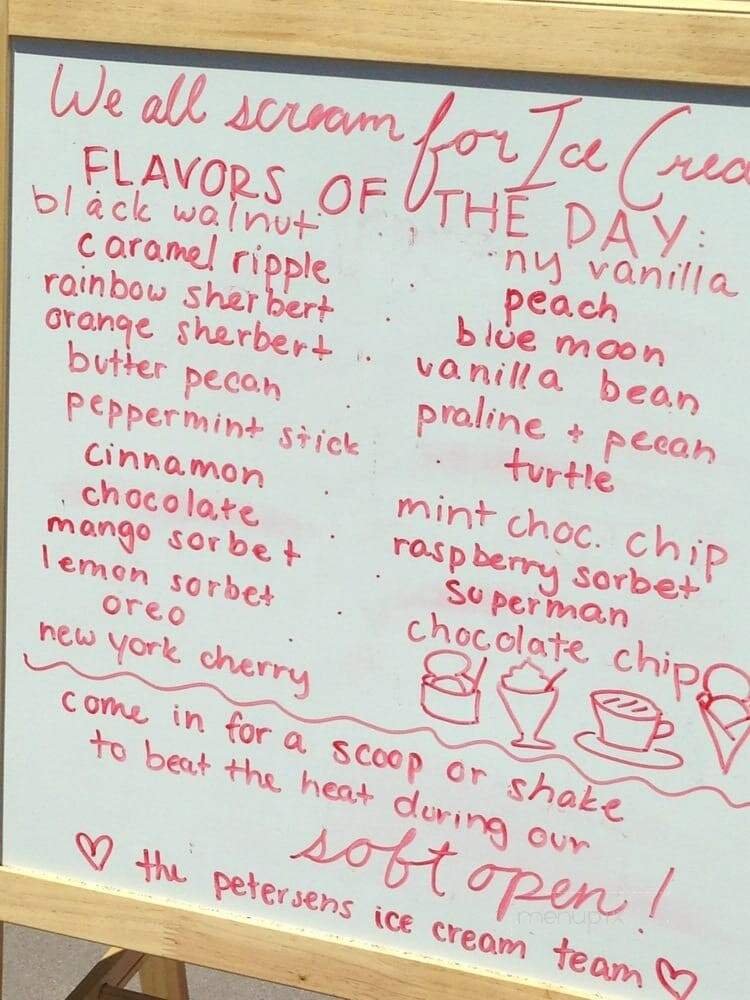 We all scream for Ice Crea
FLAVORS OF THE DAY:
black walnut
caramel ripple
rainbow sherbert
orange sherbert
butter pecan
peppermint stick
cinnamon
chocolate
mango sorbet
lemon sorbet
oreo
new york cherry
ny vanilla
peach
blue moon
vanilla bean
praline + pecan
turtle
mint choc. chip
raspberry sorbet
superman
chocolate chip
come in for a scoop or shake
to beat the heat during our
soft open!
♡ the petersens ice cream team ♡
menupix